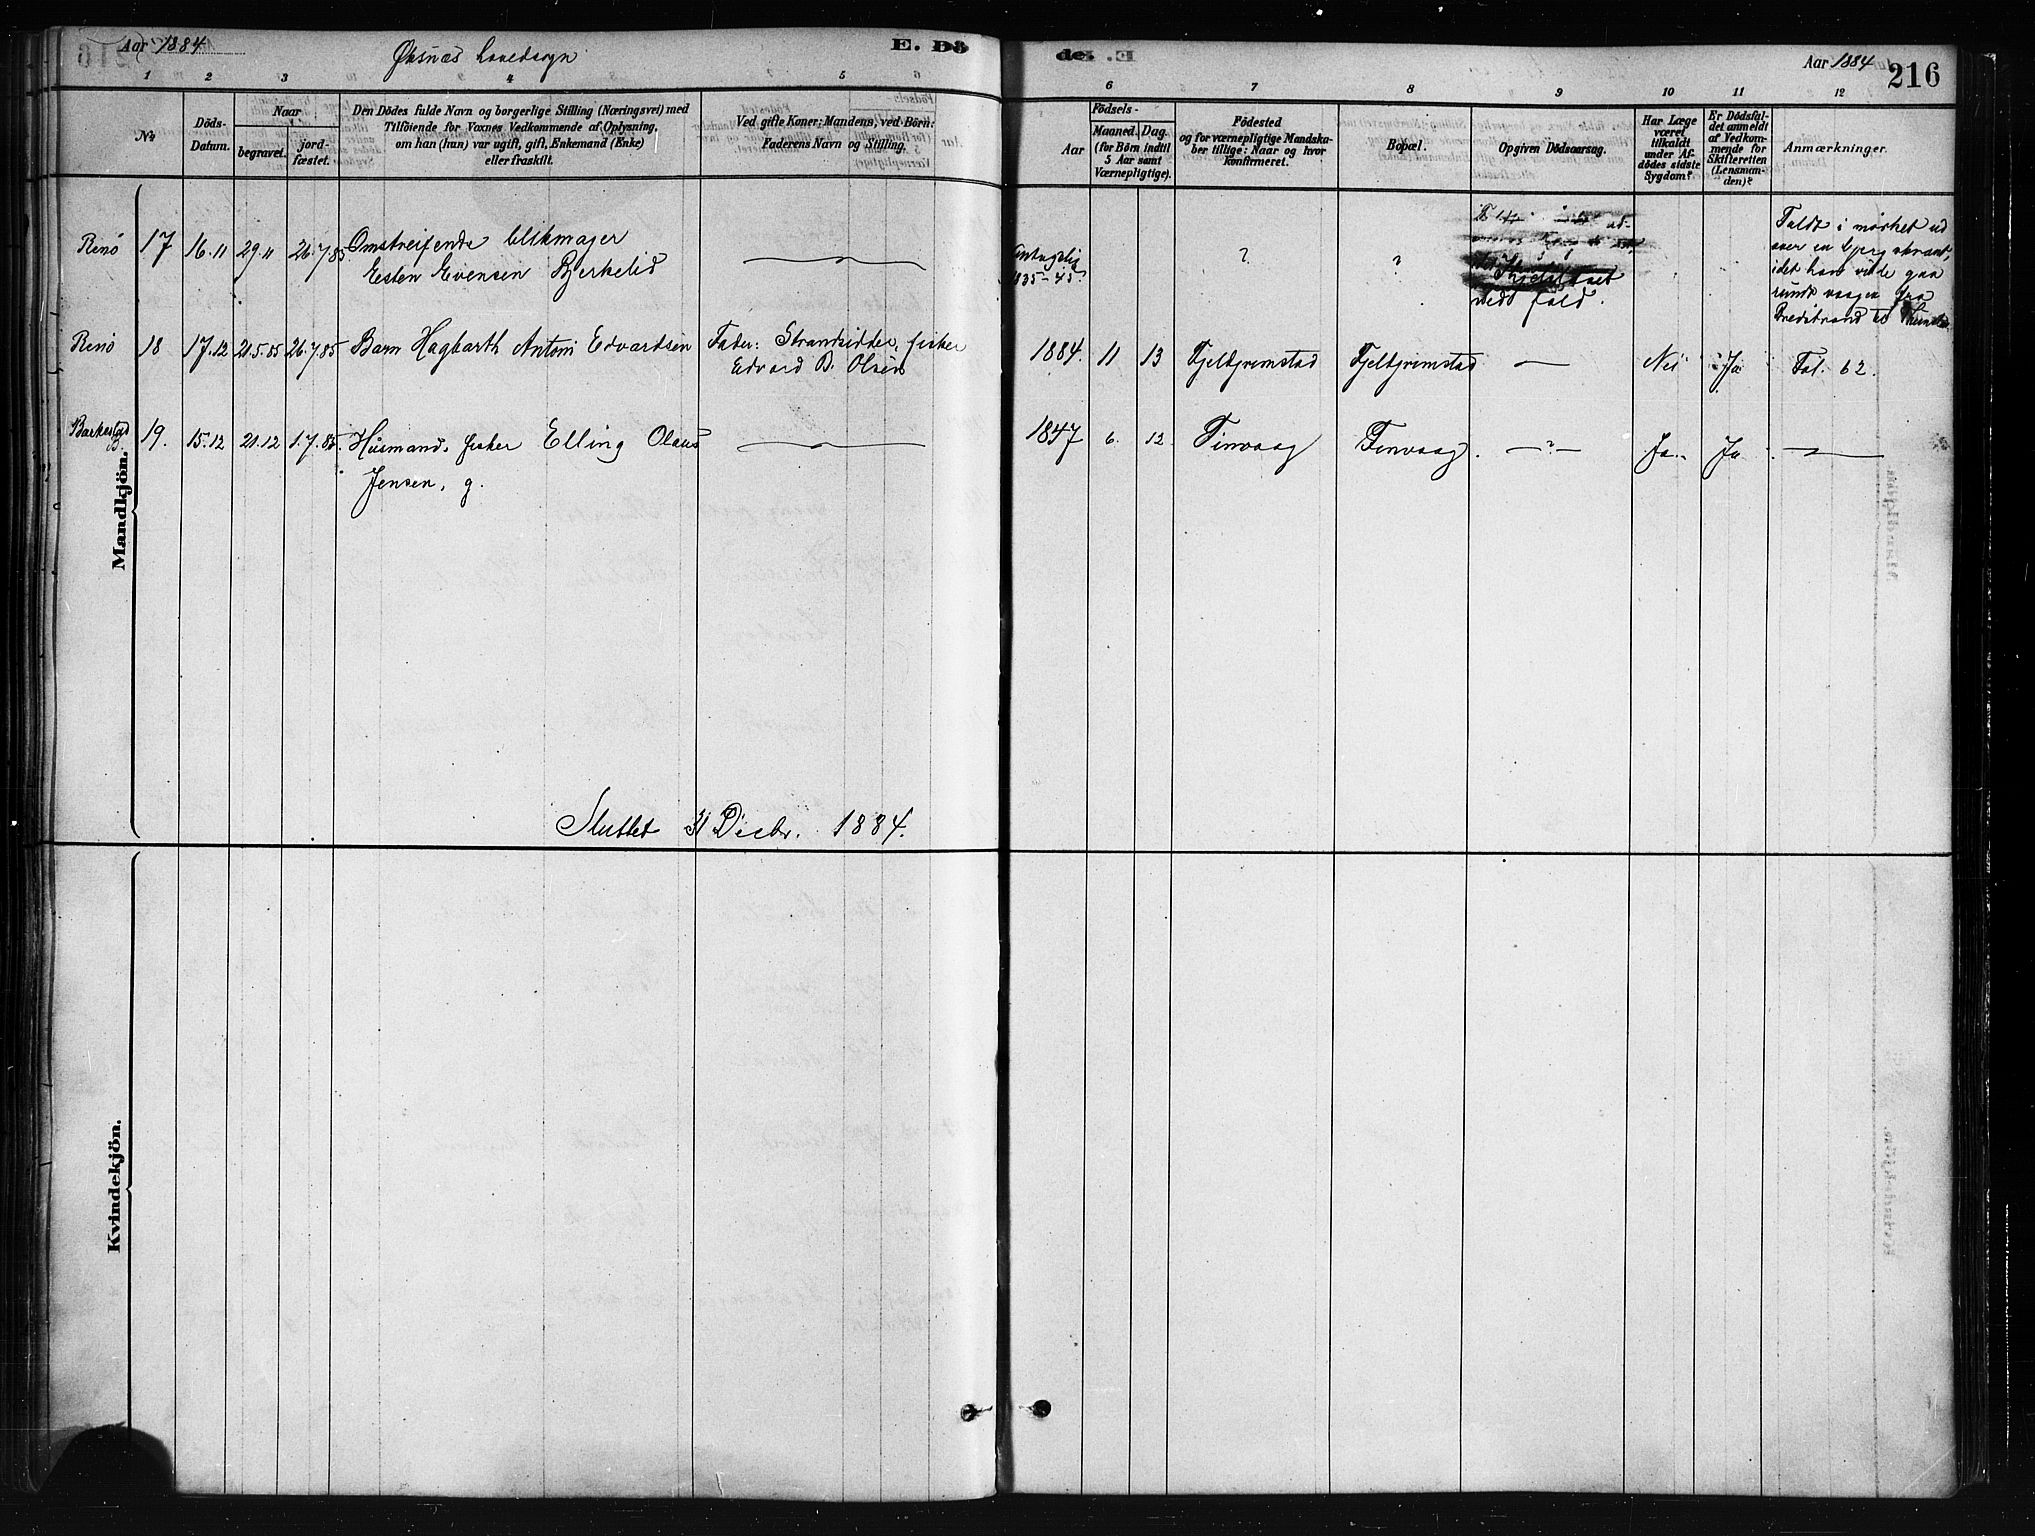 Aar 1884
Øksnæs hovedsogn
E. Dö
de. E.
Aar 1884
216
1 2 3 4 5 6 7 8 9 10 11 12
No
Döds-
Datum.
Naar
begravet.
jord-
fæstet.
Den Dödes fulde Navn og borgerlige Stilling (Næringsvei) med
Tilföiende for Voxnes Vedkommende af Oplysning,
om han (hun) var ugift, gift, Enkemand (Enke)
eller fraskilt.
Ved gifte Koner: Mandens, ved Börn:
Faderens Navn og Stilling.
Födsels-
Aar
Maaned. Dag.
(for Börn indtil
5 Aar samt
Værnepligtige).
Födested
og for værnepligtige Mandska-
ber tillige: Naar og hvor
konfirmeret.
Bopæl.
Opgiven Dödsaarsag.
Har Læge
været
tilkaldt
under Af-
dödes sidste
Sygdom?
Er Dödsfal-
det anmeldt
af Vedkom-
mende for
Skifteretten
(Lensman-
den)?
Anmærkninger.
Mandkjön.
Renø 17 16.11 29.11 26.7.85 Omstreifende blikmager
Esten Evensen Bjerkelid
Antagelig
1835-45
? ?
ved fald.
Faldt i mørket ud
over en bjergskrænt,
idet han vilde gaa
rundt vaagen fra
Bredstrand til
Renø 18 17.12 21.5.85 26.7.85 Barn Hagbarth Antoni Edvardsen
Fader: Strandsidder, fisker
Edvard B. Olsen
1884. 11 13 Fjeldgrimstad Fjeldgrimstad — Nei Ja Fol. 62.
Barkestad 19. 15.12 21.12 1.7.85. Husmand, fisker Elling Olaus
Jensen, g.
1847 6. 12. Tinvaag Tinvaag. —?— Ja. Ja
Sluttet 31 Decbr. 1884.
Kvindekjön.